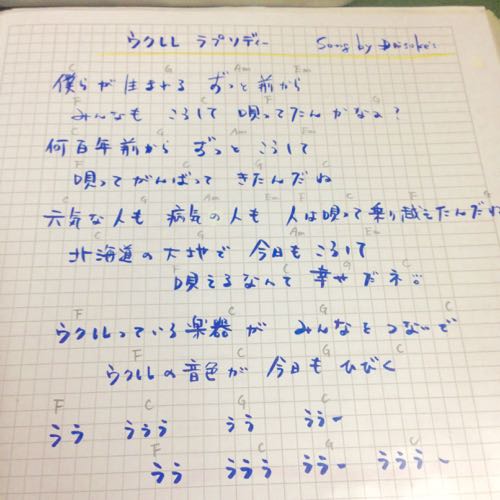 ウクレレ ラプソディー Song by Daisuke's
C G Am Em
僕らが 生まれる ずっと 前から
F C F G
みんなも こうして 唄ってたんかなぁ?
C G Am Em
何百年前から ずっと こうして
F C G C
唄って がんばって きたんだね
C G Am Em F C F G
元気な人も 病気の人も 人は唄って乗り越えたんだね
C G Am Em
北海道の大地で 今日も こうして
F C G C
唄えるなんて 幸せだネ。
F C G C
ウクレレっている楽器が みんなをつないで
F C G C
ウクレレの音色が 今日も ひびく
F C G C
うう ううう うう ううー
F C G C
うう ううう ううー うううー